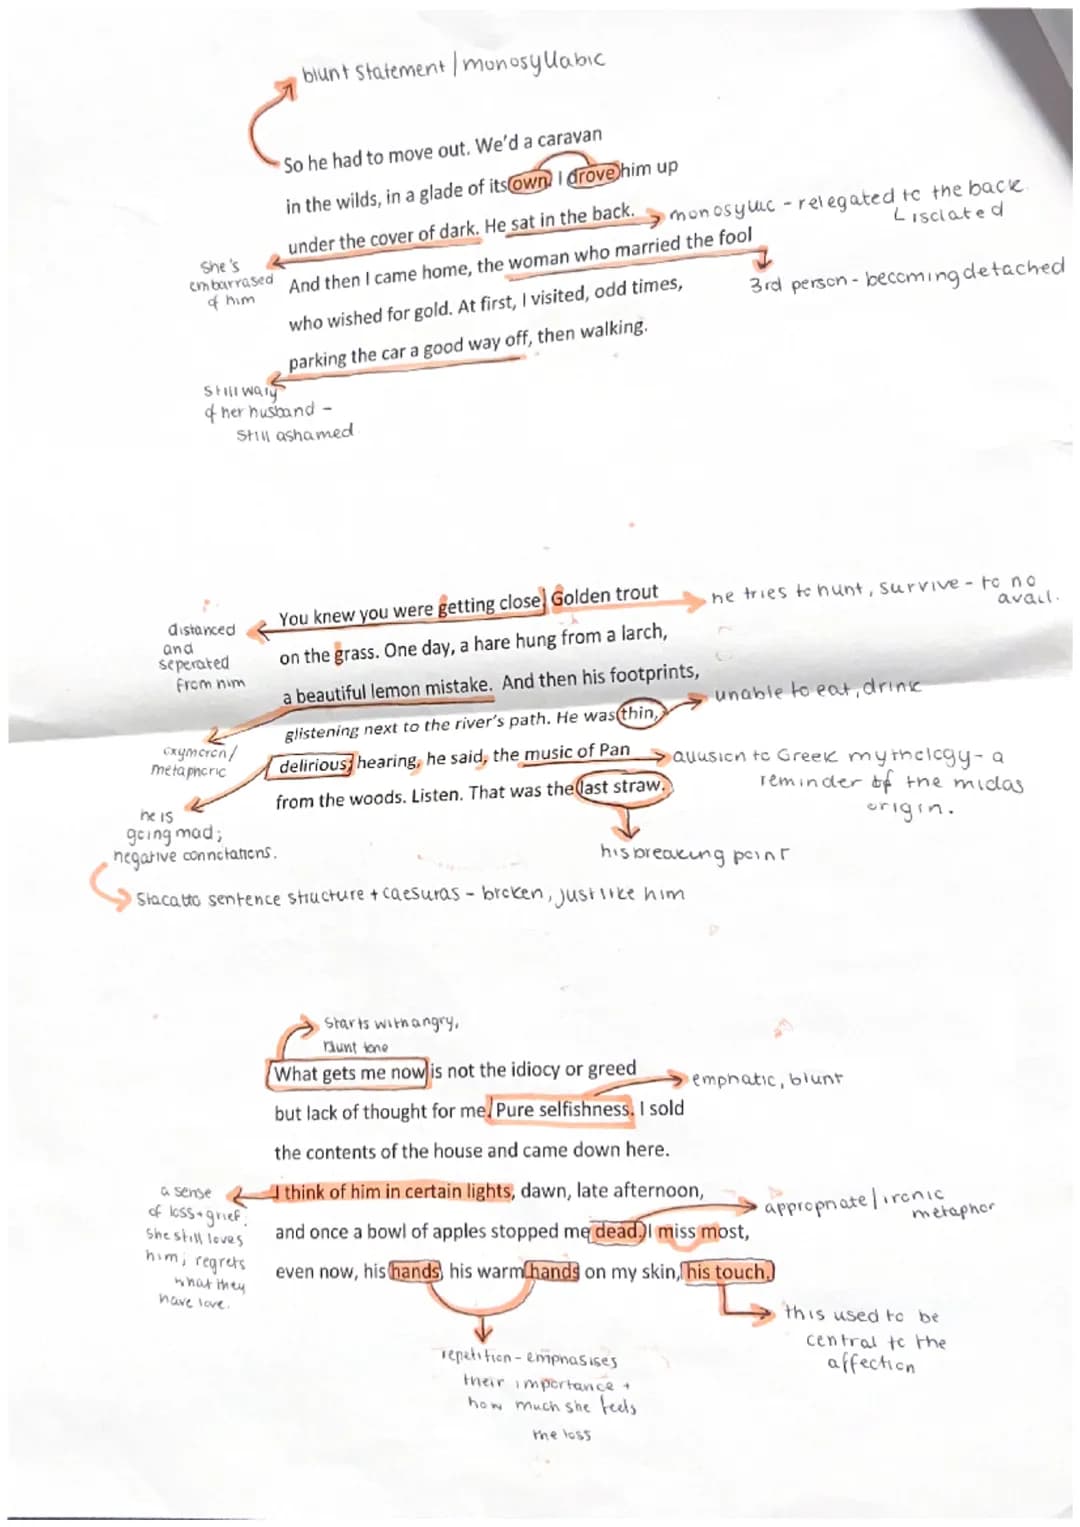 blunt statement / monosyllabic
So he had to move out. We'd a caravan
in the wilds, in a glade of its own. I drove him up
under the cover of dark. He sat in the back.
monosyllic - relegated to the back
L isolated
And then I came home, the woman who married the fool
She's
embarrased
of him
3rd person - becoming detached
who wished for gold. At first, I visited, odd times,
parking the car a good way off, then walking.
Still wary
of her husband -
still ashamed
You knew you were getting close. Golden trout
he tries to hunt, survive - to no
avail.
distanced
and
seperated
from him
on the grass. One day, a hare hung from a larch,
a beautiful lemon mistake. And then his footprints,
unable to eat, drink
glistening next to the river's path. He was thin,
oxymoron/
metaphoric
delirious; hearing, he said, the music of Pan
allusion to Greek mythology - a
reminder of the midas
origin.
from the woods. Listen. That was the last straw.
he is
going mad;
negative connotations.
his breaking point
Stacatto sentence structure + caesuras - broken, just like him
Starts with angry,
blunt tone
What gets me now is not the idiocy or greed
emphatic, blunt
but lack of thought for me. Pure selfishness. I sold
the contents of the house and came down here.
I think of him in certain lights, dawn, late afternoon,
a sense
of loss + grief.
She still loves
him; regrets
what they
have love.
appropriate / ironic
metaphor
and once a bowl of apples stopped me dead. I miss most,
even now, his hands, his warm hands on my skin, his touch.
this used to be
central to the
affection
repetition - emphasises
their importance +
how much she feels
the loss